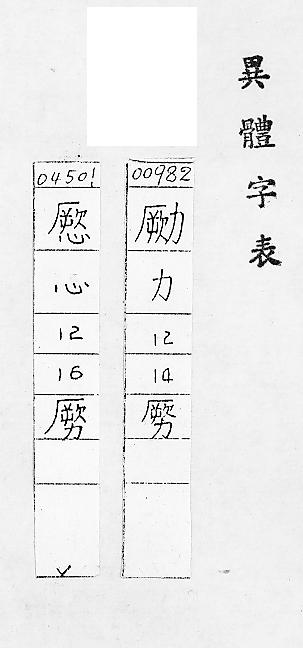 異體字表
00982
勪
力
12
14
04501
心
12
16